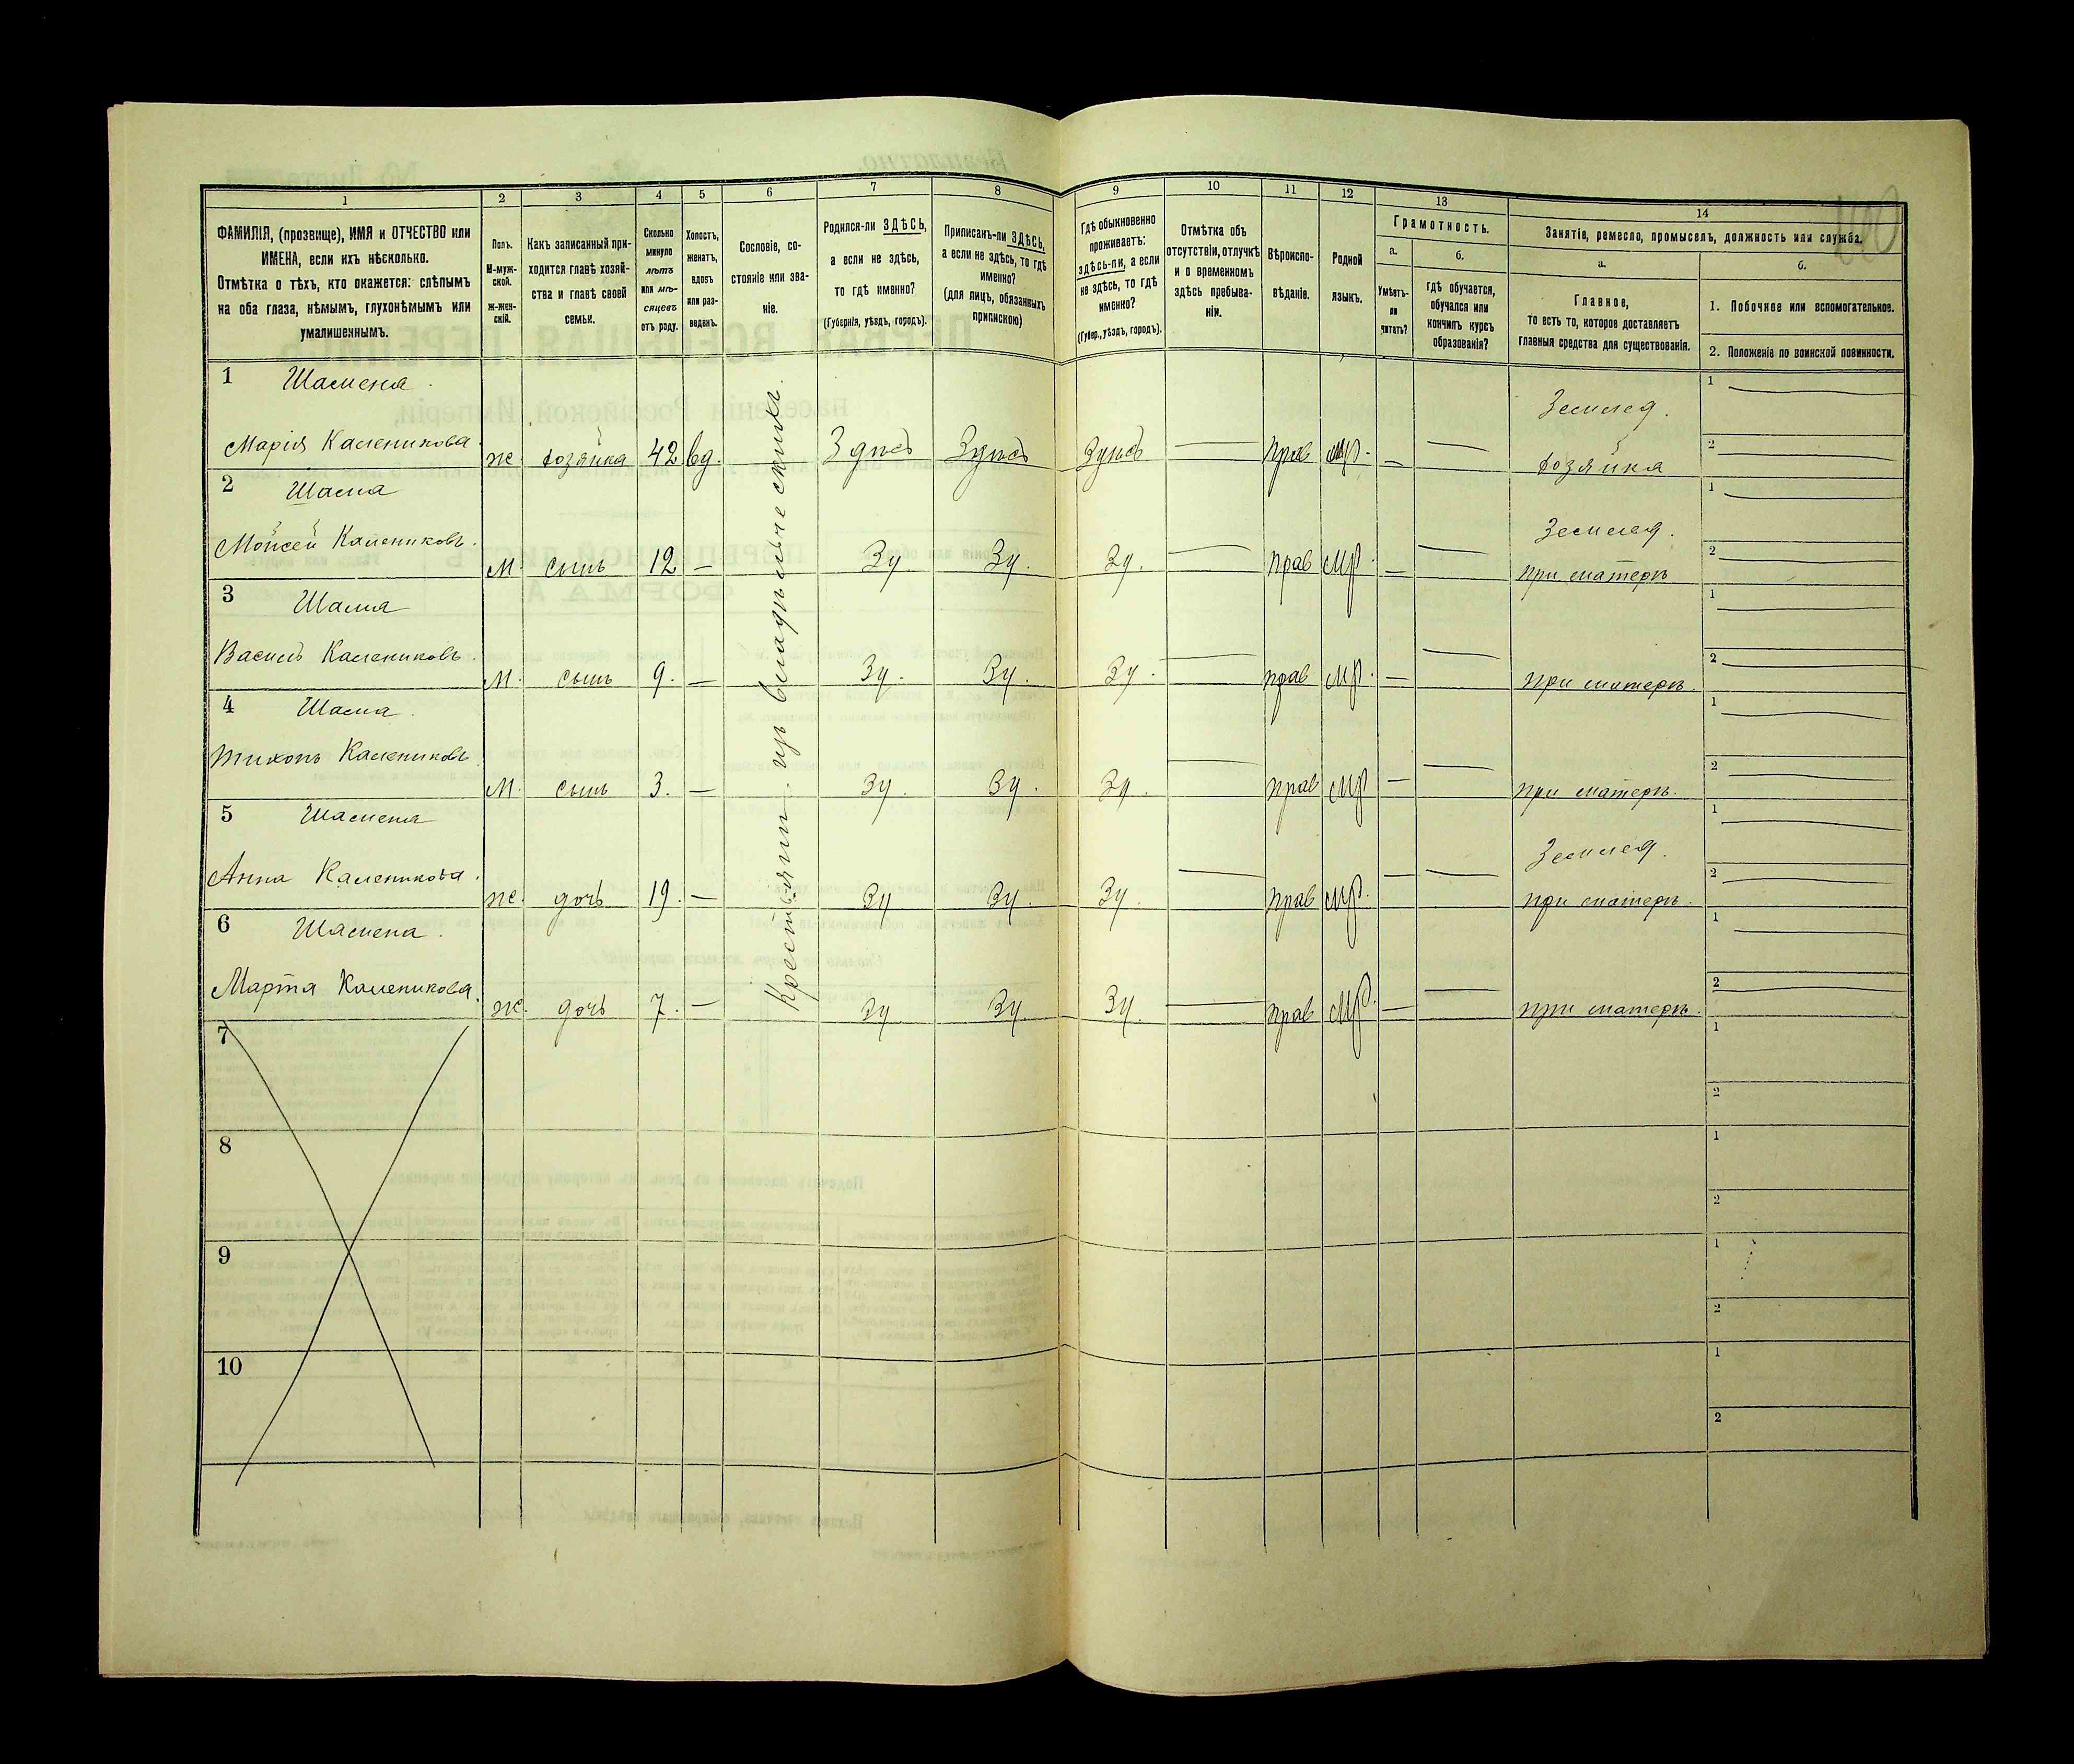 1
2
3
4
5
6
7
8
9
10
11
12
13
14
ФАМИЛІЯ, (прозвище), ИМЯ и ОТЧЕСТВО или
ИМЕНА, если ихъ нѣсколько.
Отмѣтка о тѣхъ, кто окажется: слѣпымъ
на оба глаза, нѣмымъ, глухонѣмымъ или
умалишеннымъ.
Полъ.
М-муж-
ской.
ж-жен-
скій.
Какъ записанный при-
ходится главѣ хозяй-
ства и главѣ своей
семьи.
Сколько
минуло
лѣтъ
или мѣ-
сяцевъ
отъ роду.
Холостъ,
женатъ,
вдовъ
или раз-
веденъ.
Сословіе, со-
стояніе или зва-
ніе.
Родился-ли ЗДѢСЬ,
а если не здѣсь,
то гдѣ именно?
(Губернія, уѣздъ, городъ).
Приписанъ-ли ЗДѢСЬ,
а если не здѣсь, то гдѣ
именно?
(для лицъ, обязанныхъ
припискою)
Гдѣ обыкновенно
проживаетъ:
здѣсь-ли, а если
не здѣсь, то гдѣ
именно?
(Губер., уѣздъ, городъ).
Отмѣтка объ
отсутствіи, отлучкѣ
и о временномъ
здѣсь пребыва-
ніи.
Вѣроиспо-
вѣданіе.
Родной
языкъ.
Грамотность.
а.
Умѣетъ-
ли
читать?
б.
гдѣ обучается,
обучался или
кончилъ курсъ
образованія?
Занятіе, ремесло, промыселъ, должность или служба.
а.
Главное,
то есть то, которое доставляетъ
главныя средства для существованія.
б.
1. Побочное или вспомогательное.
2. Положеніе по воинской повинности.
Крестьяни изъ владѣльческихъ.
1 Шамена. Землед. 1
Марія Каленикова. ж. хозяйка 42 вд. Здѣсь Здѣсь Здѣсь — прав мр. — — хозяйка 2
2 Шама Землед. 1
Мойсей Калениковъ. М. сынъ 12 — Зд. Зд. Зд. — прав мр. — — при матери 2
3 Шама 1
Василь Калениковъ. М. сынъ 9. — Зд. Зд. Зд. — прав мр. — — при матери. 2
4 Шама. 1
Тихонъ Калениковъ. М. сынъ 3. — Зд. Зд. Зд. — прав мр — — при матери. 2
5 Шамена Землед. 1
Анна Каленикова. ж. дочь 19. — Зд Зд. Зд. — прав мр. — — при матери. 2
6 Шамена. 1
Марта Каленикова. ж. дочь 7. — Зд Зд. Зд. — прав мр. — — при матери. 2
7 1
2
8 1
2
9 1
2
10 1
2